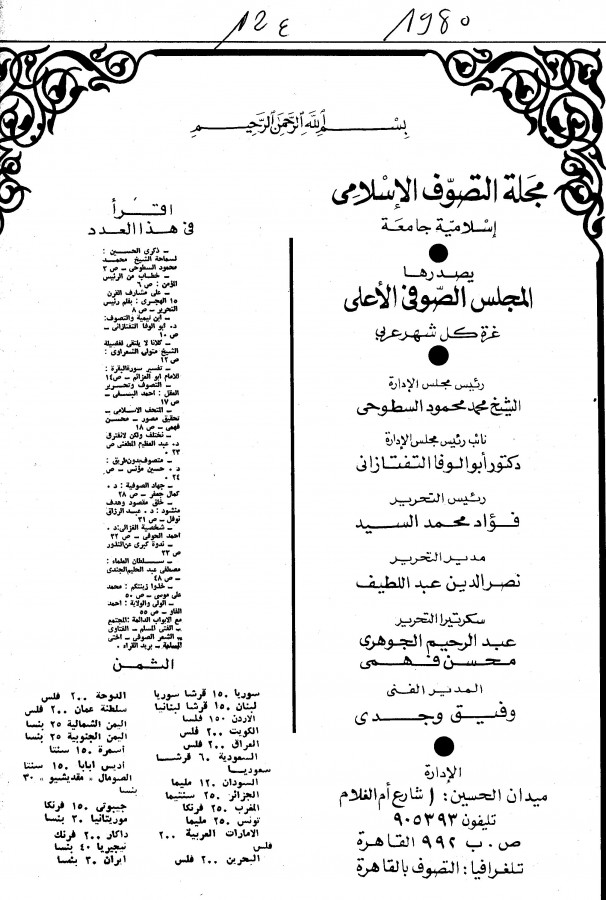 12 ع 1980
بسم الله الرحمن الرحيم
مجلة التصوّف الإسلامى
إسلامية جامعة
يصدرها
المجلس الصّوفى الأعلى
غرة كل شهر عربي
رئيس مجلس الإدارة
الشيخ محمد محمود السطوحى
نائب رئيس مجلس الإدارة
دكتور أبو الوفا التفتازانى
رئيس التحرير
فؤاد محمد السيد
مدير التحرير
نصر الدين عبد اللطيف
سكرتيرا التحرير
عبد الرحيم الجوهرى
محسن فهمى
المدير الفنى
وفيق وجدى
الإدارة
ميدان الحسين: ١ شارع أم الغلام
تليفون ٩٠٥٣٩٣
ص. ب ٩٩٢ القاهرة
تلغرافيا: التصوف بالقاهرة
اقرأ
فى هذا العدد
ـ ذكرى الحسين :
لسماحة الشيخ محمد
محمود السطوحى ـ ص ٣
ـ خطاب من الرئيس
المؤمن : ص ٦
ـ على مشارف القرن
١٥ الهجرى : بقلم رئيس
التحرير ـ ص ٨
ـ ابن تيمية والتصوف:
د. ابو الوفا التفتازانى ـ
ص ١٠
ـ كلانا لا يلتقى لفضيلة
الشيخ متولى الشعراوى :
ص ١٢
ـ تفسير سورة البقرة :
للامام ابو العزائم ـ ص ١٤
ـ التصوف وتحرير
العقل : احمد
ص ١٧
ـ التحف الاسلامى ـ
تحقيق مصور ـ محسن
فهمى ـ ص ١٨
ـ نختلف ولكن لانفترق
د. عبد العظيم المطعنى ص
٢٣ ٠
ـ متصوف بدون طريق :
د. حسين مؤنس ـ ص
٢٤ ٠
ـ جهاد الصوفية : د.
كمال جعفر ـ ص ٢٨
ـ خلق مقصود وهدف
منشود : د. عبد الرزاق
نوفل ـ ص ٣١
ـ شخصية الغزالى : د.
احمد الحوفى ـ ص ٣٢
ـ ندوة كبرى عن النذور
ص ٣٣
ـ سلطان العلماء :
مصطفى عبد الحليم الجندى
ـ ص ٤٨
ـ خذوا زينتكم : محمد
على موسى ـ ص ٥٠
ـ الولى والولاية : احمد
ـ ص ٥٥
مع الابواب الدائمة : المجتمع
ـ الفتى المسلم ـ الفتاوى
ـ الشعر الصوفى ـ اختى
المسلمة ـ بريد القراء ٠
الثمن
سوريا ١٥٠ قرشا سوريا
لبنان ١٥٠ قرشا لبنانيا
الاردن ١٥٠ فلسا
الكويت ٢٠٠ فلس
العراق ٢٠٠ فلس
السعودية ٦٠ قرشا
سعوديا
السودان ١٢٠ مليما
الجزائر ٢٥٠ سنتيما
المغرب ٢٥٠ فرنكا
تونس ٢٥٠ مليما
الامارات العربية ٢٠٠
فلس
البحرين ٢٠٠ فلس
الدوحة ٢٠٠ فلس
سلطنة عمان ٢٠٠ فلس
اليمن الشمالية ٢٥ بنسا
اليمن الجنوبية ٢٥ بنسا
أسمرة ١٥٠ سنتا
أديس ابابا ١٥٠ سنتا
الصومال « مقديشيو » ٣٠
بنسا
جيبوتى ١٥٠ فرنكا
موريتانيا ٣٠ بنسا
داكار ٢٠٠ فرنك
نيجيريا ٤٠ بنسا
ايران ٣٠ بنسا